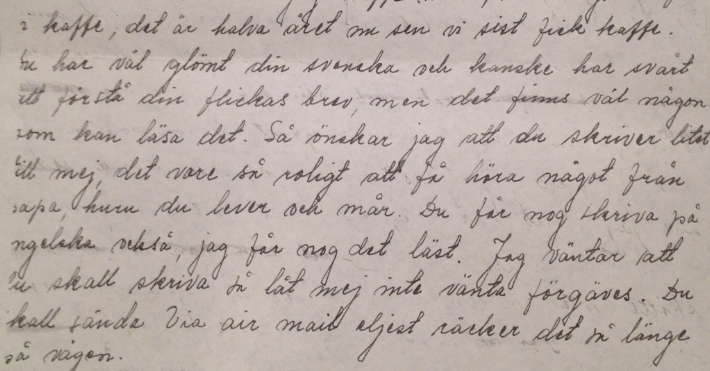 i kaffe, det är halva året nu sen vi sist fick kaffe.
Du har väl glömt din svenska och kanske har svårt
att förstå din flickas brev, men det finns väl någon
som kan läsa det. Så önskar jag att du skriver litet
till mej, det vore så roligt att få höra något från
papa, huru du lever och mår. Du får nog skriva på
ngelska också, jag får nog det läst. Jag väntar att
du skall skriva så låt mej inte vänta förgäves. Du
skall sända Via air mail eljest räcker det så länge
på vägen.